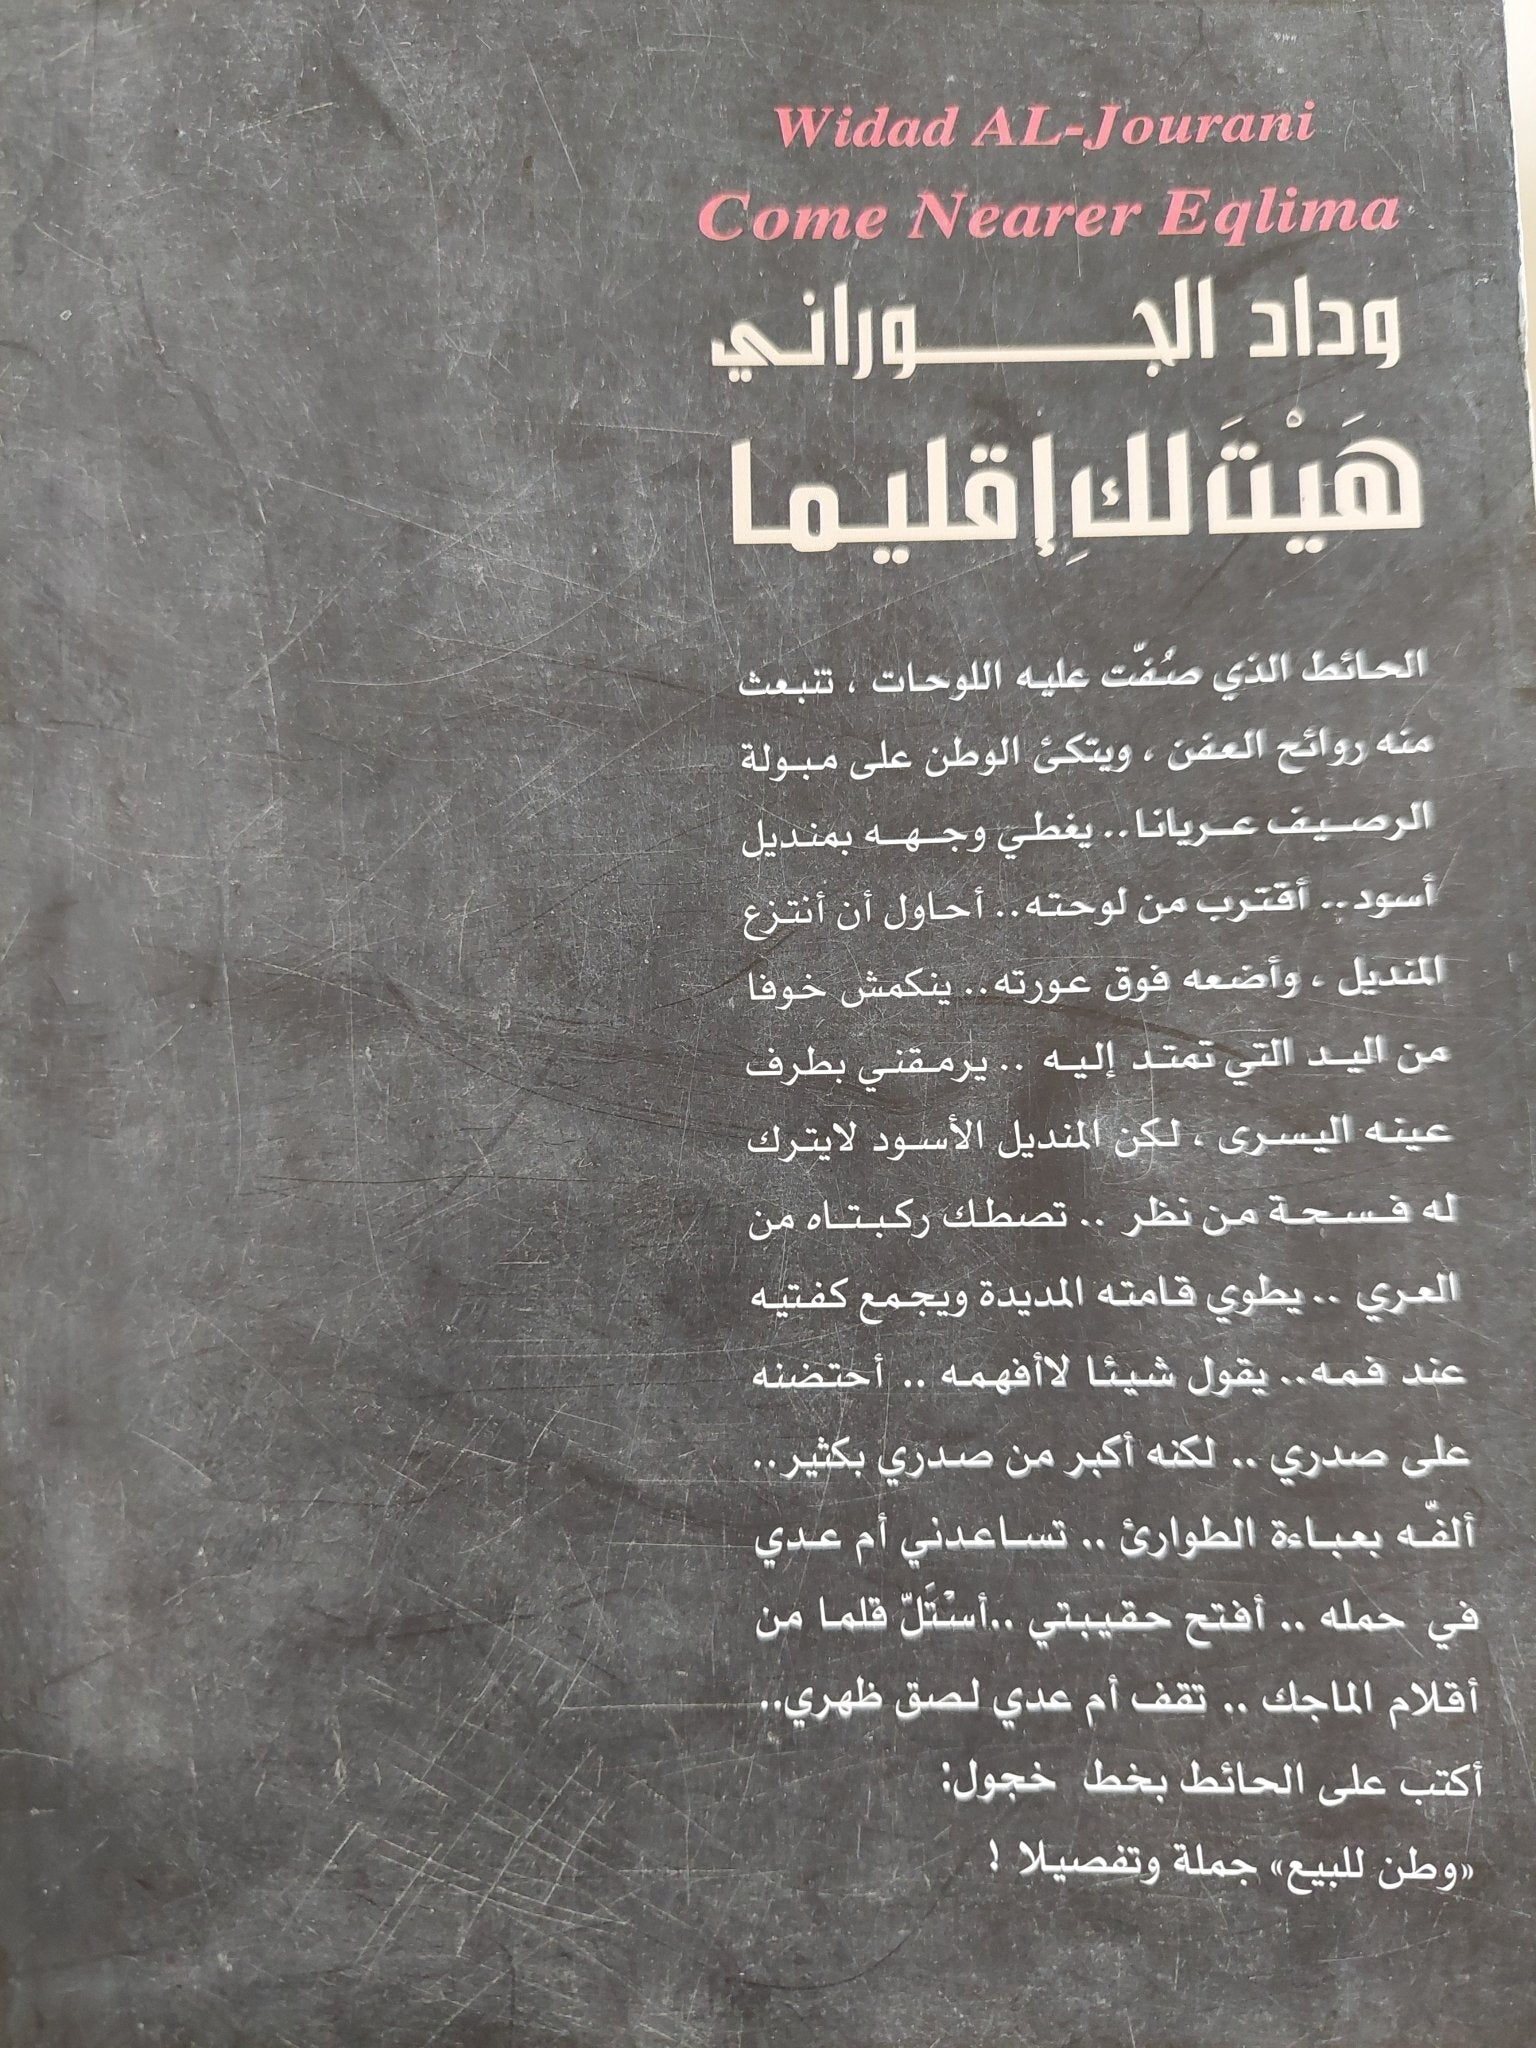 Widad AL-Jourani
Come Nearer Eqlima
وداد الجـــوراني
هَيْتَ لكِ إقليما
الحائط الذي صُفّت عليه اللوحات ، تنبعث
منه روائح العفن ، ويتكئ الوطن على مبولة
الرصيف عريانا.. يغطي وجهه بمنديل
أسود.. أقترب من لوحته.. أحاول أن أنتزع
المنديل ، وأضعه فوق عورته.. ينكمش خوفا
من اليد التي تمتد إليه .. يرمقني بطرف
عينه اليسرى ، لكن المنديل الأسود لايترك
له فسحة من نظر .. تصطك ركبتاه من
العري .. يطوي قامته المديدة ويجمع كفتيه
عند فمه.. يقول شيئا لاأفهمه .. أحتضنه
على صدري .. لكنه أكبر من صدري بكثير..
ألفّه بعباءة الطوارئ .. تساعدني أم عدي
في حمله .. أفتح حقيبتي ..أسْتَلّ قلما من
أقلام الماجك .. تقف أم عدي لصق ظهري..
أكتب على الحائط بخط خجول:
«وطن للبيع» جملة وتفصيلا !